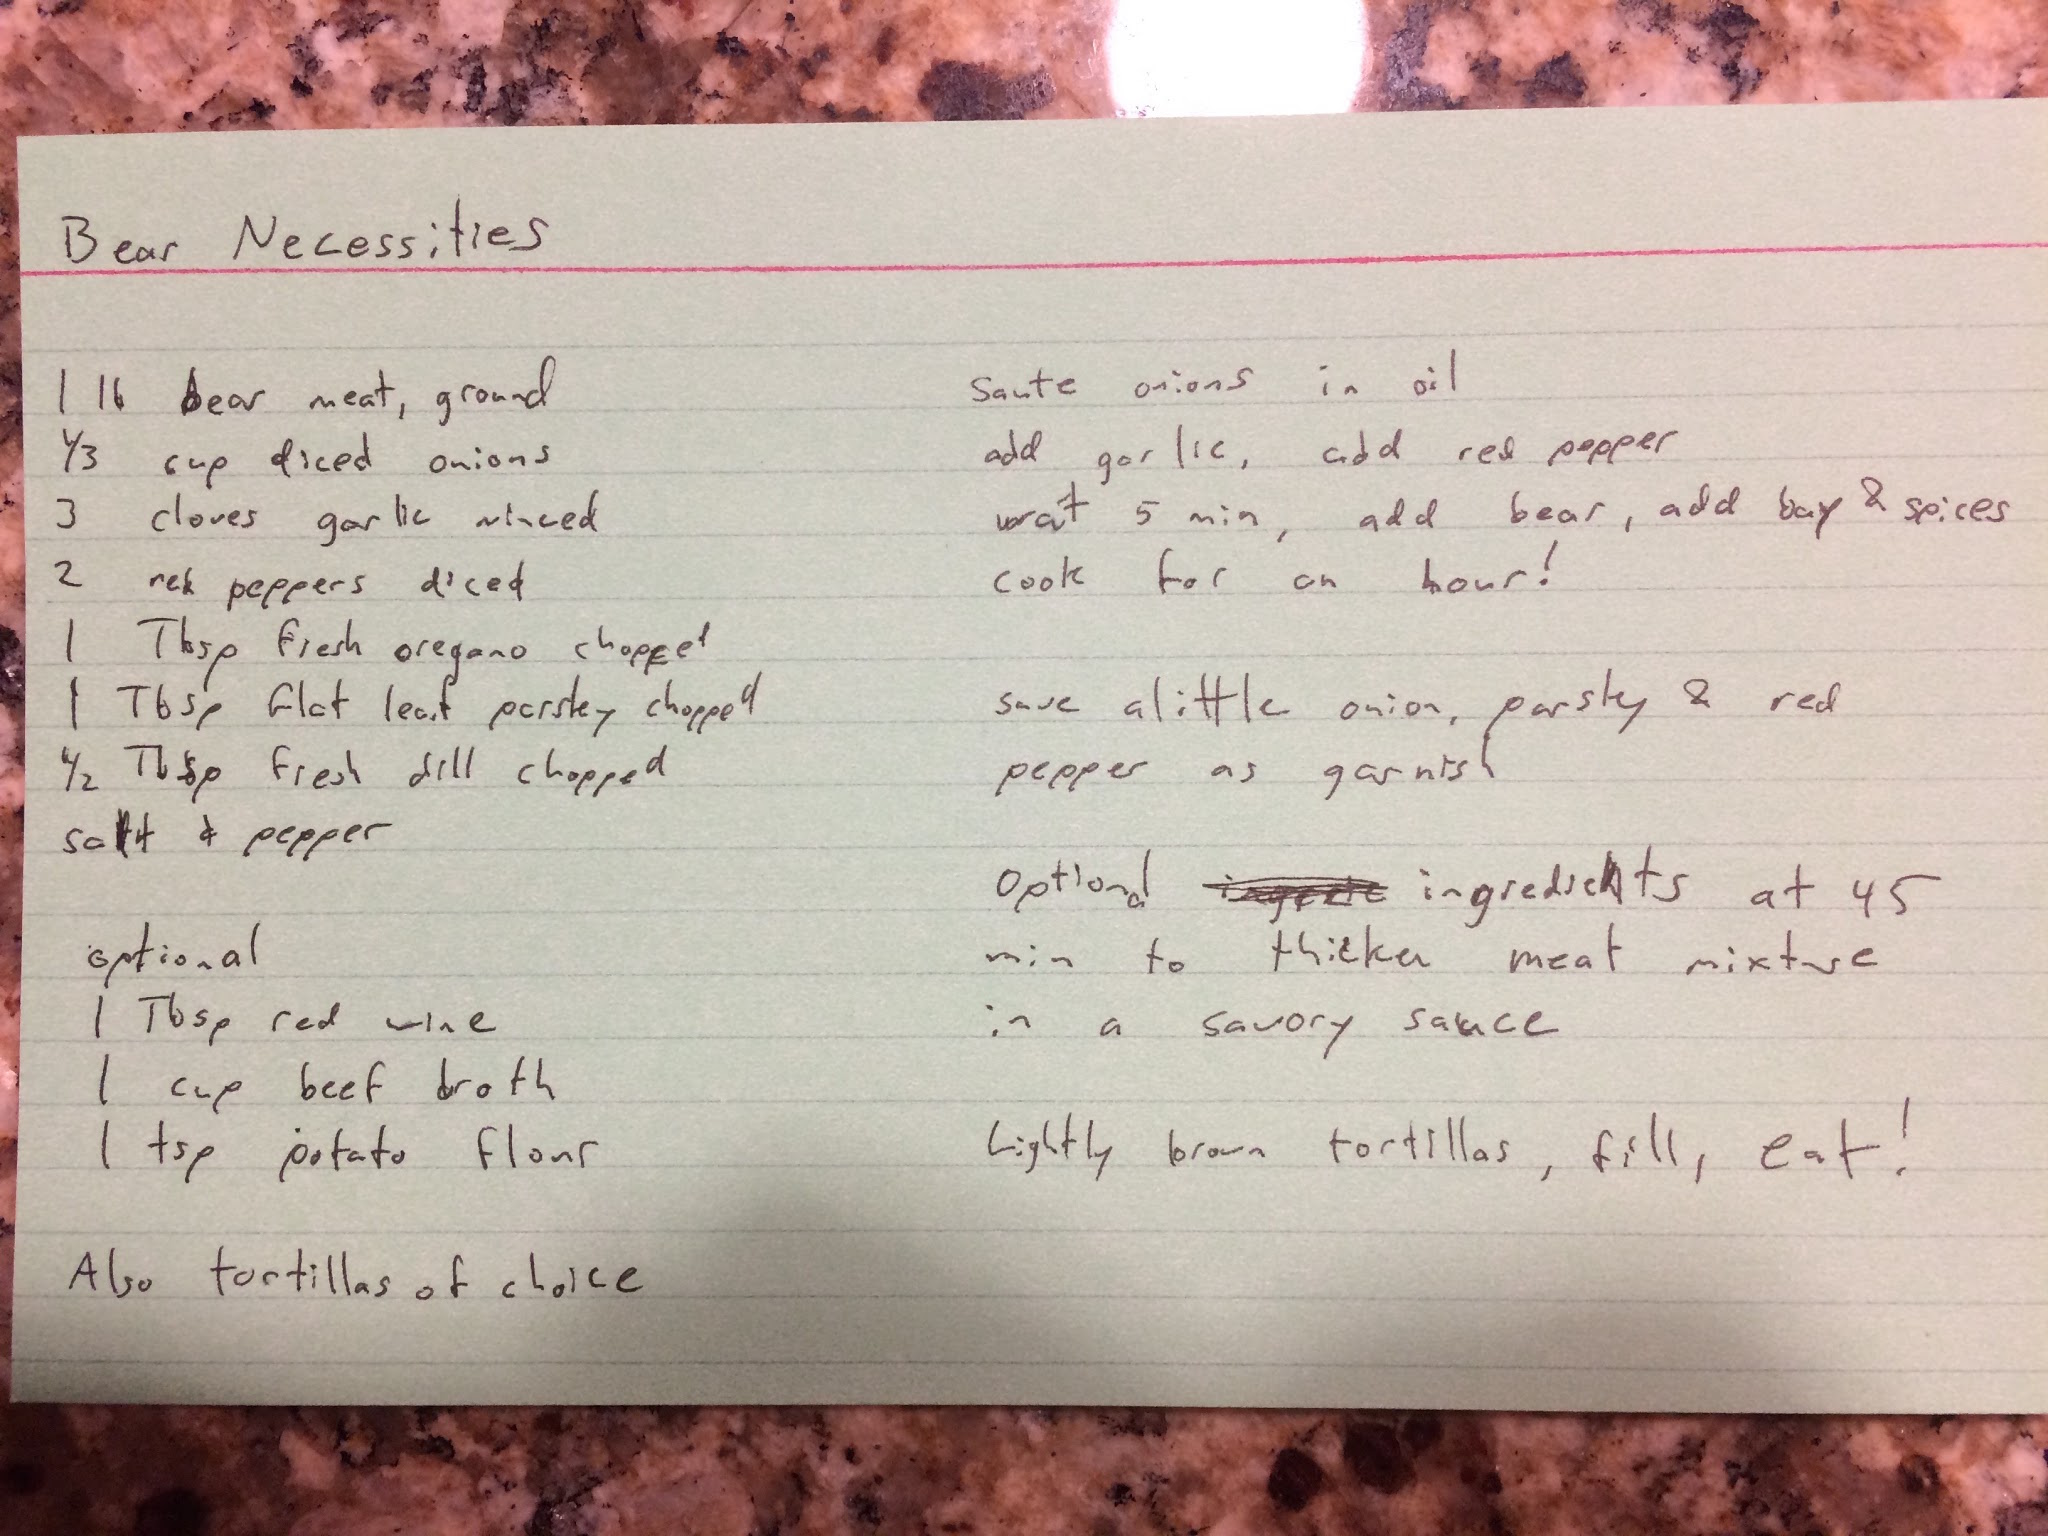 Bear Necessities
1 lb bear meat, ground
1/3 cup diced onions
3 cloves garlic minced
2 red peppers diced
1 Tbsp fresh oregano chopped
1 Tbsp flat leaf parsley chopped
1/2 Tbsp fresh dill chopped
salt & pepper
optional
1 Tbsp red wine
1 cup beef broth
1 tsp potato flour
Also tortillas of choice
Saute onions in oil
add garlic, add red pepper
wait 5 min, add bear, add bay & spices
cook for an hour!
save a little onion, parsley & red
pepper as garnish
Optional ingredients at 45
min to thicken meat mixture
in a savory sauce
Lightly brown tortillas, fill, eat!